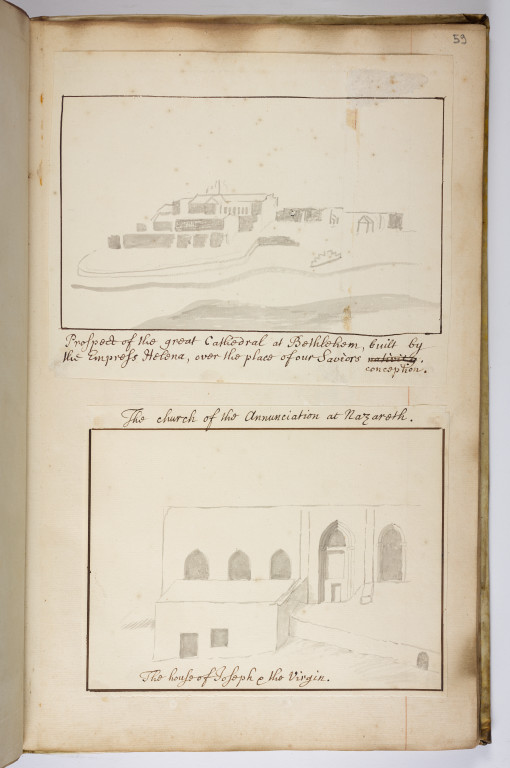 59
Prospect of the great Cathedral at Bethlehem, built by
the Empress Helena, over the place of our Saviors nativity.
conception.
The church of the Annunciation at Nazareth.
The house of Joseph & the Virgin.